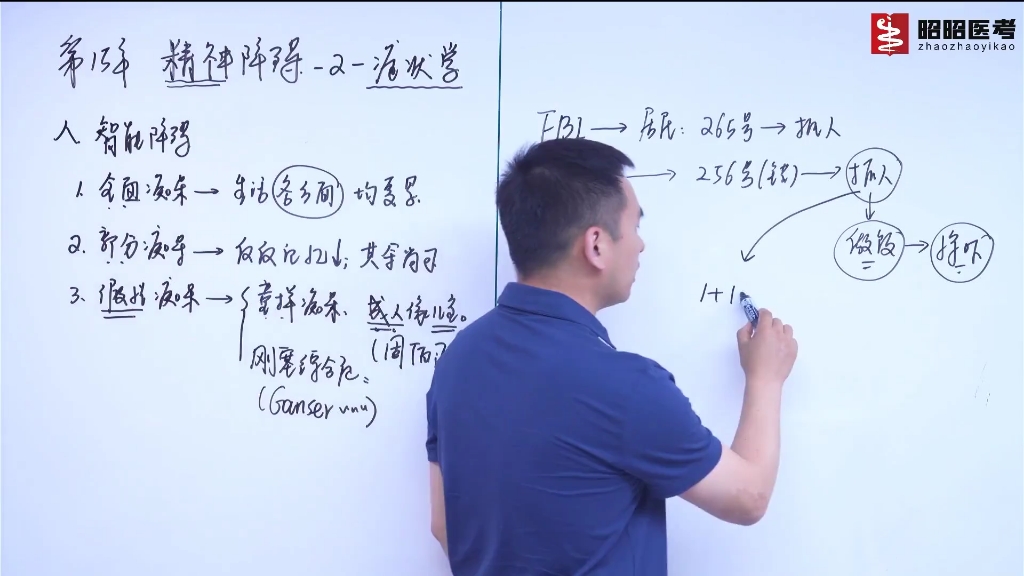 昭昭医考
zhaozhaoyikao
第15章 精神障碍-2-症状学
智能障碍
1. 全面痴呆→生活各方面均受累
2. 部分痴呆→仅仅记忆↓; 其余尚可
3. 假性痴呆→童样痴呆. 成人像儿童。
刚塞综合征:
(Ganser
FBI→居民: 265号→抓人
→256号(错)→抓人
做饭→
1+1